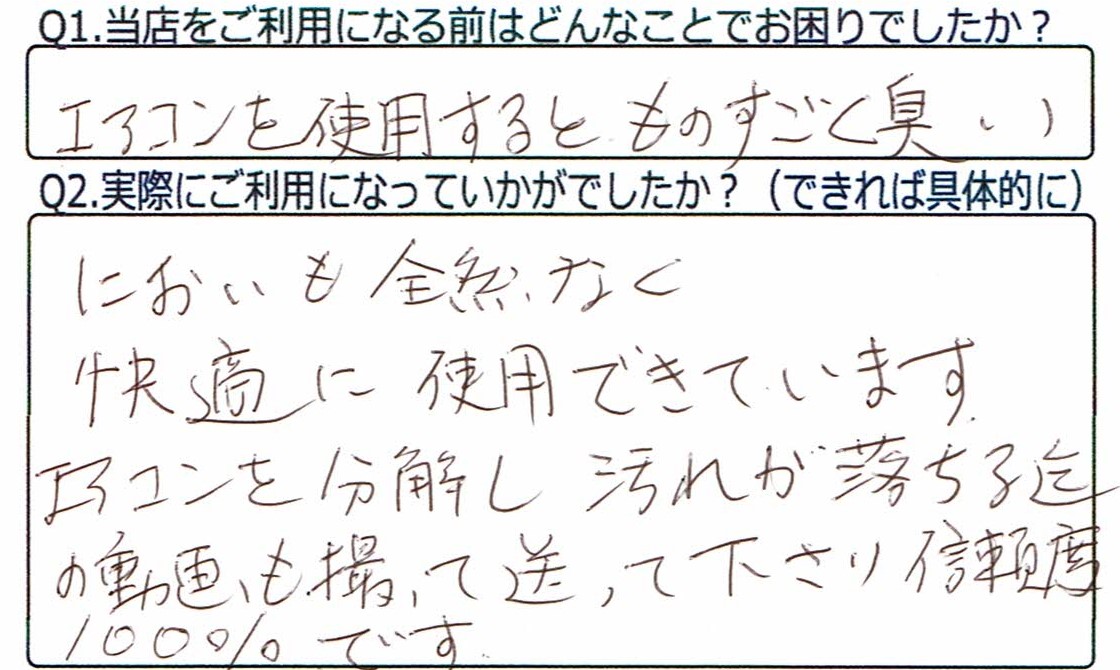 Q1.当店をご利用になる前はどんなことでお困りでしたか？
エアコンを使用するとものすごく臭い
Q2.実際にご利用になっていかがでしたか？（できれば具体的に）
においも全然なく
快適に使用できています
エアコンを分解し汚れが落ちる迄
の動画も撮って送って下さり信頼度
100%です